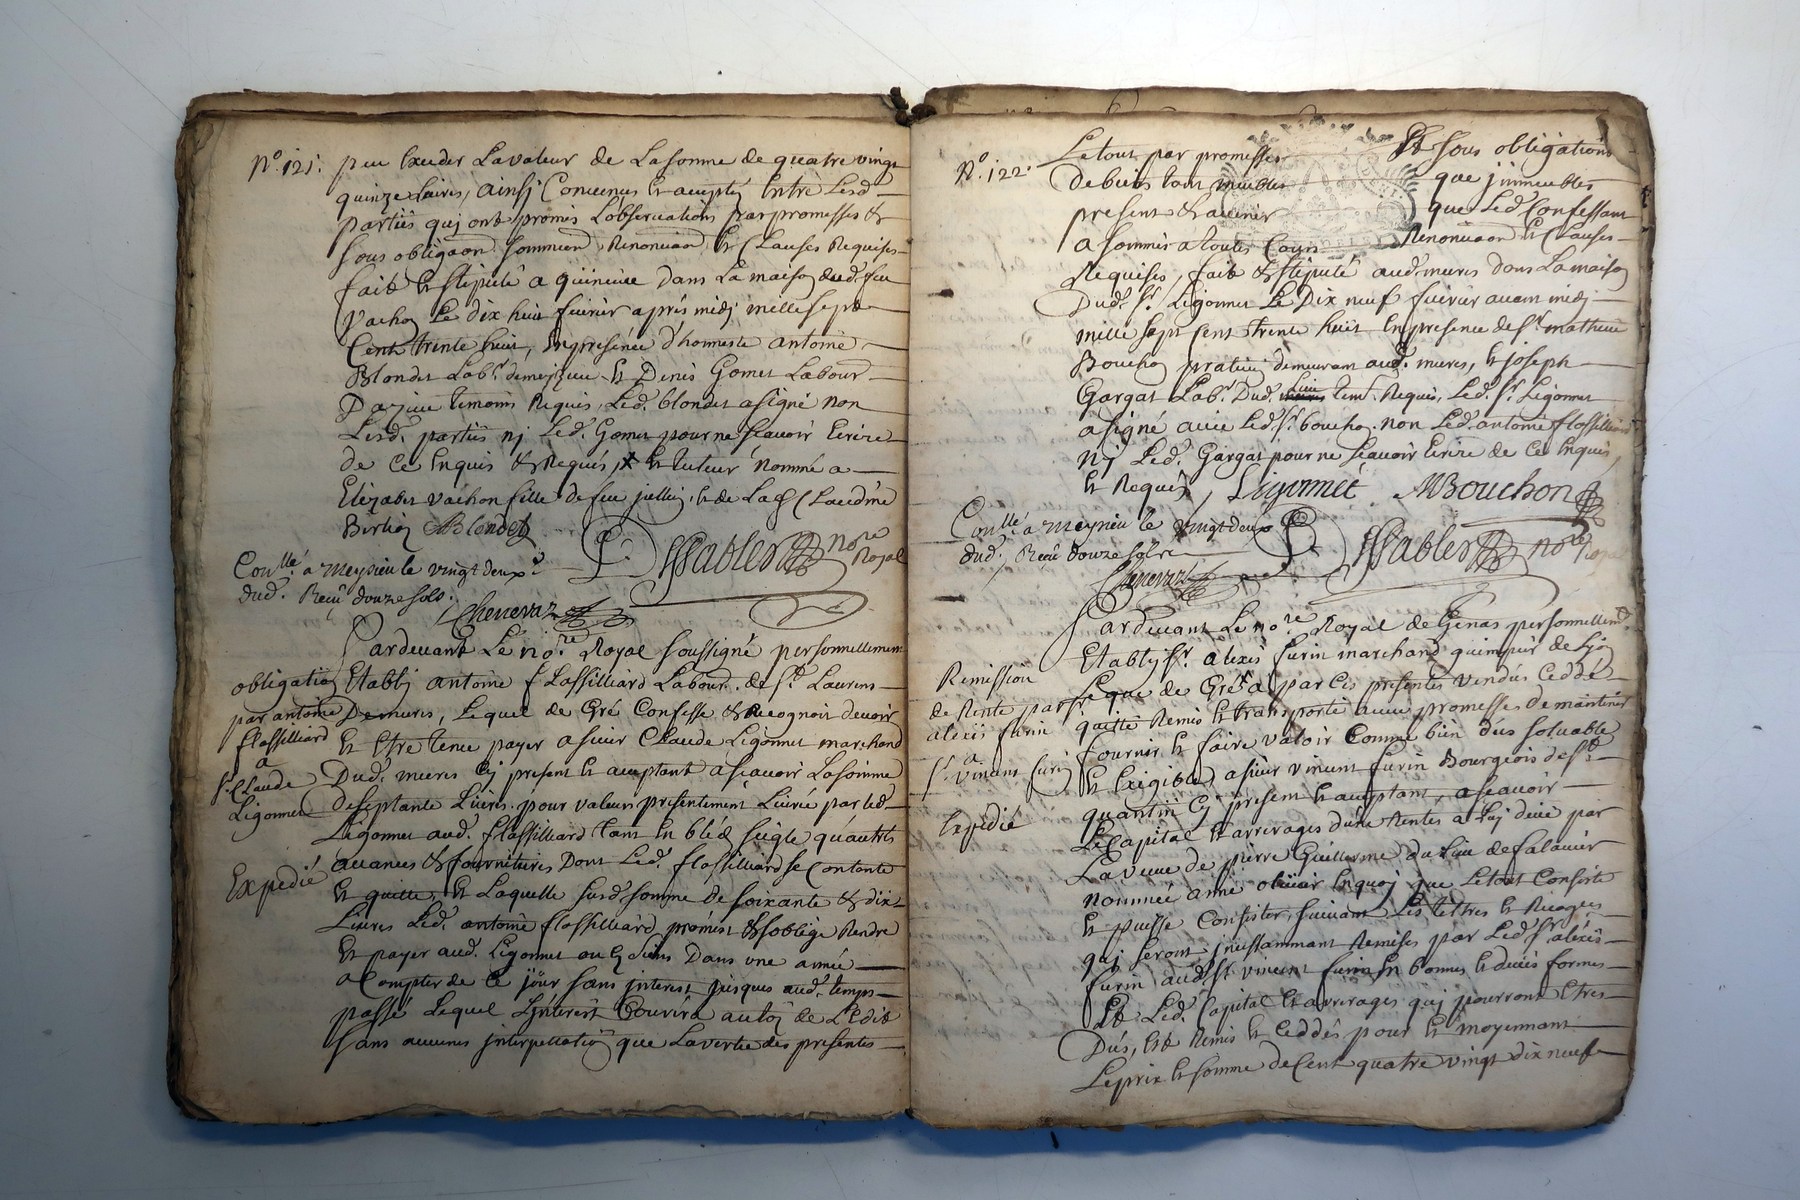 N.º 121.
peu Exceder La valeur de La somme de quatre vingt
quinze Livres, ainsj Convenus Et accepté Entre Lesd
parties quj ont promis L'observation par promesses &
sous obligaon soumiond Renonciaon Et Clauses Requises
fait Et stipulé a dans La maison dud. feu
Vachon Le dix huit fevrier après midj mille sept
Cent trente huit, En presence d'honneste antoine
Blondet Lab.r de meyzieu Et Denis Gomet Labour
D'azieu temoins Requis, Led. blondet a signé non
Lesd. parties nj Led. Gomet pour ne scavoir Ecrire
de ce Enquis & Requis, x Et tuteur nommé a
Elizabet vachon fille de feu jullin, & de Lad Claudine
ABlondet
DSsablers no.re Royal
Con.llé a meysieu le vingt deux
dud. Reçu douze sols.
Chenevaz
Pardevant Le no.re Royal soussigné personnellement
Etablj antoine flassilliard Labour. de S.t Laurens
De mures, Lequel de Gré Confesse & Recognoit devoir
Et Etre tenu payer a sieur Claude Ligonnet marchand
Dud. mures Cj present Et acceptant a scavoir La somme
de septante Livres pour valeur presentement Livrée par led.
Ligonnet aud. flassilliard tant En bléd seigle qu'autres
avances & fournitures Dont Led. flassilliard se Contante
Et quitte, Et Laquelle susd somme De soixante & dix
Livres Led. antoine flassilliard promet & s'oblige Rendre
Et payer aud. Ligonnet ou Es siens Dans une année
a Compter de Ce jour sans interest jusques aud. temps
passé Lequel L'jnterest Courira au tos de L'Edit
sans aucunes jnterpellation que La vertu des presentes
obligation
par antoine
flassilliard
a
s.r Claude
Ligonnet
Expedié
N.º 122.
Le tout par promesses Et sous obligations
De biens tant meubles que jmmeubles
present & avenir que Led Confessant
a soumis a toutes Cours Renonciaon Et Clauses
Requises, fait & stipulé aud. mures dans La maison
Dud. S.r Ligonnet Le Dix neuf fevrier avant midj
mille sept Cent trente huit En presence de S.r mathieu
Bouchon praticien demeurant aud. mures, Et joseph
Gargat Lab.r Dud. Lieu tem. Requis, Led. S.r Ligonnet
a signé avec Led S.r bouchon non Led. antoine flassilliard
nj Led. Gargat pour ne scavoir Ecrire de Ce Enquis,
Et Requis, Ligonnet MBouchon
Con.llé a meysieu le vingt deux
dud. Reçu douze sols
DSsablers no.re Royal
Chenevaz
Pardevant Le no.re Royal de Genas personnellem.
Etably S.r alexis furin marchand quimpier de Lyon
Leque de Gré a par Ces presentes vendus Ceddé
quitté Remis Et transporté avec promesses de maintenir
fournir Et faire valoir Comme bien dus soluable
Et Exigible, a sieur vincent furin Bourgeois de S.t
quantin Cj present Et acceptant, a scavoir
Le Capital Et arrerages d'une Rentes a Luj deue par
La veuve de pierre Guillerme du Lieu de
nommée anne olivier Enquoj que Le tout Consiste
Et puisse Consister, suivant Les tittres Et
quj seront jncessamment Remises par Led. S.r alexis
furin aud. S.t vincent furin En bonnes Et dues formes
Et Led. Capital Et arrerages quj pourront Etres
Dus, Est Remis Et Ceddés pour Et moyennant
Le prix Et somme de Cent quatre vingt dix neuf
Remission
de Rente par S.r
alexis furin
a
S.r vincent furin
Expedié